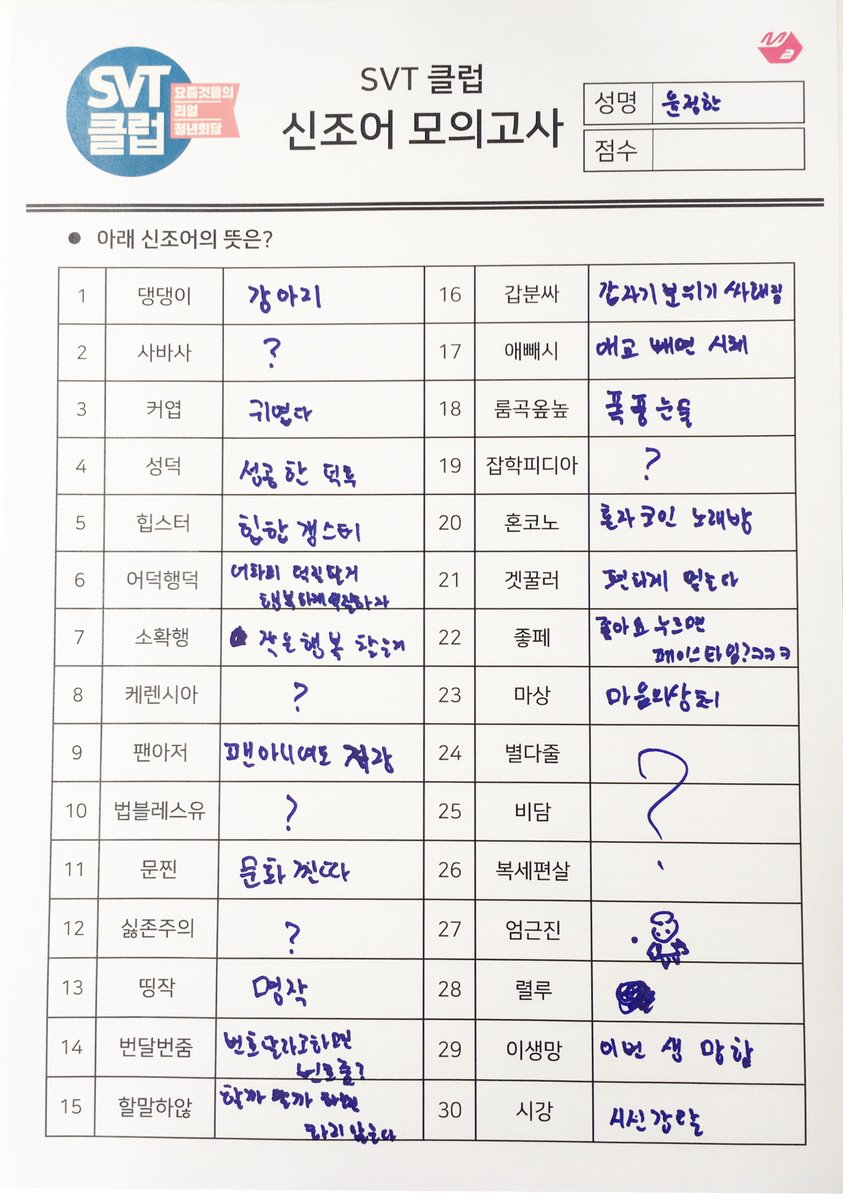 SVT
클럽
요즘것들의
리얼
청년회담
SVT 클럽
신조어 모의고사
M2
성명 윤정한
점수
● 아래 신조어의 뜻은?
1 댕댕이 강아지
2 사바사 ?
3 커엽 귀엽다
4 성덕 성공한 덕후
5 힙스터 힙합 갱스터
6 어덕행덕 어차피 덕질할거
행복하게 덕질하자
7 소확행 작은 행복 찾는거
8 케렌시아 ?
9 팬아저 팬아니여도 저장
10 법블레스유 ?
11 문찐 문화 찐따
12 싫존주의 ?
13 띵작 명작
14 번달번줌 번호 달라고하면
번호줌?
15 할말하않 할까 말까 하면
하지 않는다
16 갑분싸 갑자기 분위기 싸해짐
17 애빼시 애교 빼면 시체
18 롬곡옾높 폭풍눈물
19 잡학피디아 ?
20 혼코노 혼자 코인 노래방
21 겟꿀러
22 좋페 좋아요 누르면
페이스타임?ㅋㅋㅋ
23 마상 마음의상처
24 별다줄 ?
25 비담
26 복세편살
27 엄근진
28 렬루
29 이생망 이번 생 망함
30 시강 시신강탈